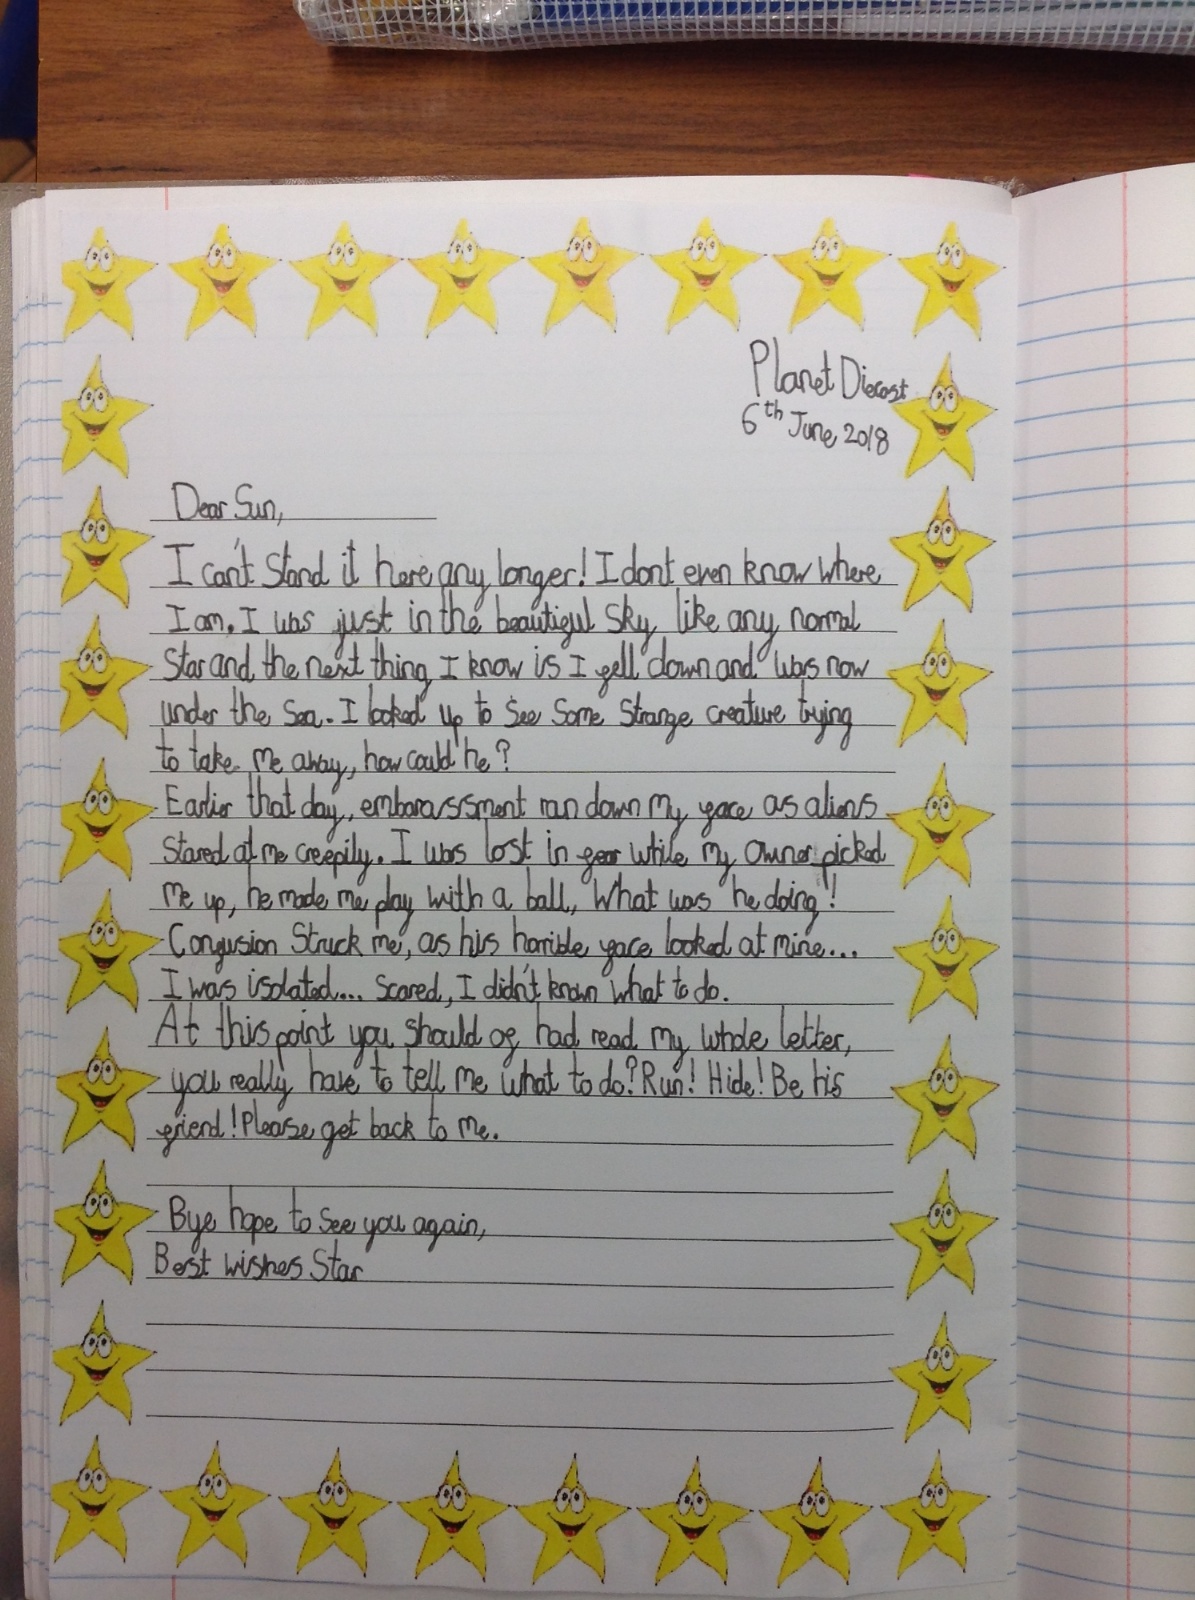 Planet Diecast
6th June, 2018
Dear Sun,
I can't stand it here any longer! I dont even know where
I am. I was just in the beautiful sky like any normal
star and the next thing I know is I fell down and was now
under the sea. I looked up to see some strange creature trying
to take me away, how could he?
Earlier that day, embarassment ran down my face as aliens
stared at me creepily. I was lost in fear while my owner picked
me up, he made me play with a ball, What was he doing!!
Confusion struck me, as his horrible face looked at mine...
I was isolated... scared, I didn't known what to do.
At this point you should of had read my whole letter,
you really have to tell me what to do? Run! Hide! Be his
friend! Please get back to me.
Bye hope to see you again,
Best wishes Star